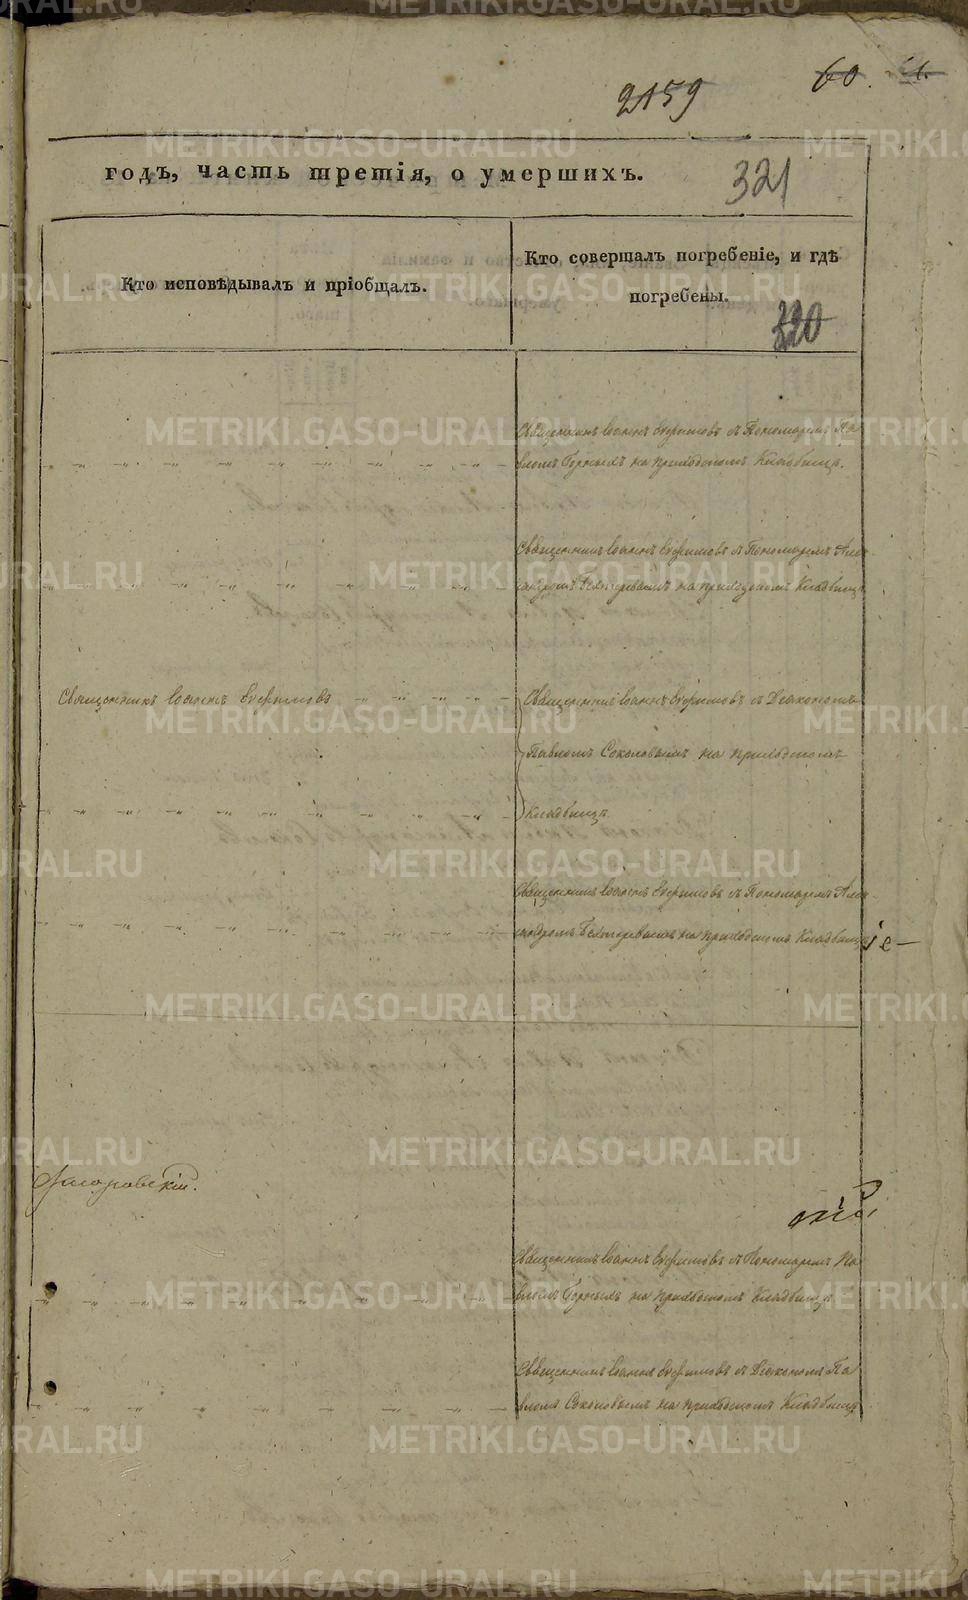 2159
60.
годъ, часть третія, о умершихъ.
321
Кто исповѣдывалъ и пріобщалъ.
Кто совершалъ погребеніе, и гдѣ
погребены.
320
Священникъ Іоаннъ Ефимовъ съ Пономаремъ Па
вломъ Горнымъ на приходскомъ Кладбищѣ.
Священникъ Іоаннъ Ефимовъ съ Пономаремъ Алек-
сандромъ на приходскомъ Кладбищѣ
Священникъ Іоаннъ Ефимовъ
Священникъ Іоаннъ Ефимовъ съ Діакономъ
Павломъ Соколовымъ на приходскомъ
Кладбищѣ.
Священникъ Іоаннъ Ефимовъ съ Пономаремъ Алек-
сандромъ на приходскомъ Кладбищѣ
Священникъ Іоаннъ Ефимовъ съ Пономаремъ Па
вломъ Горнымъ на приходскомъ Кладбищѣ
Священникъ Іоаннъ Ефимовъ съ Діакономъ Па
вломъ Соколовымъ на приходскомъ Кладбищѣ
METRIKI.GASO-URAL.RU